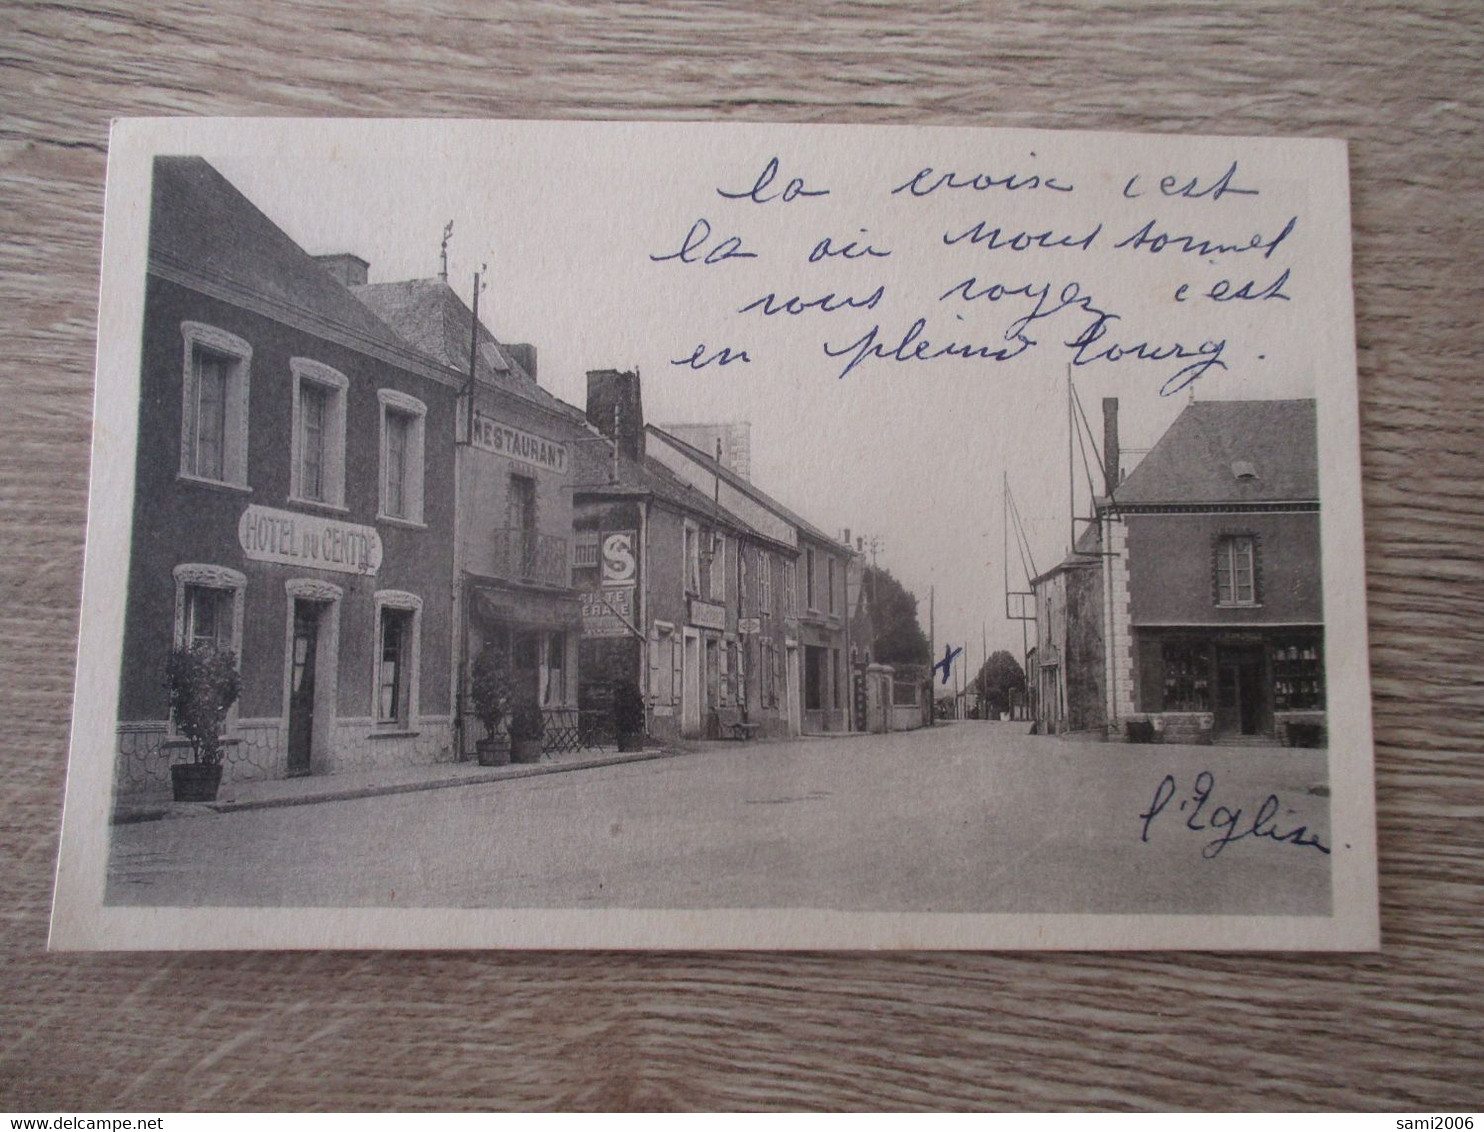 la croix c'est
la où nous sommes
vous voyez c'est
en plein bourg.
RESTAURANT
HOTEL DU CENTRE
S
X
l'Eglise
sami2006